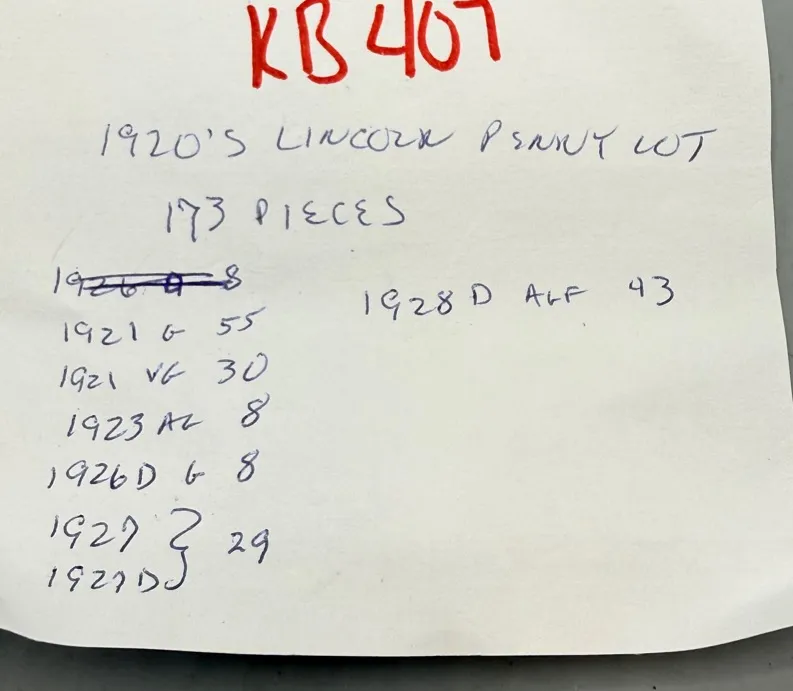 KB407
1920'S LINCOLN PENNY LOT
173 PIECES
1926 D 8
1921 G 55
1921 VG 30
1923 AG 8
1926D G 8
1927 } 29
1927D
1928 D AGF 43